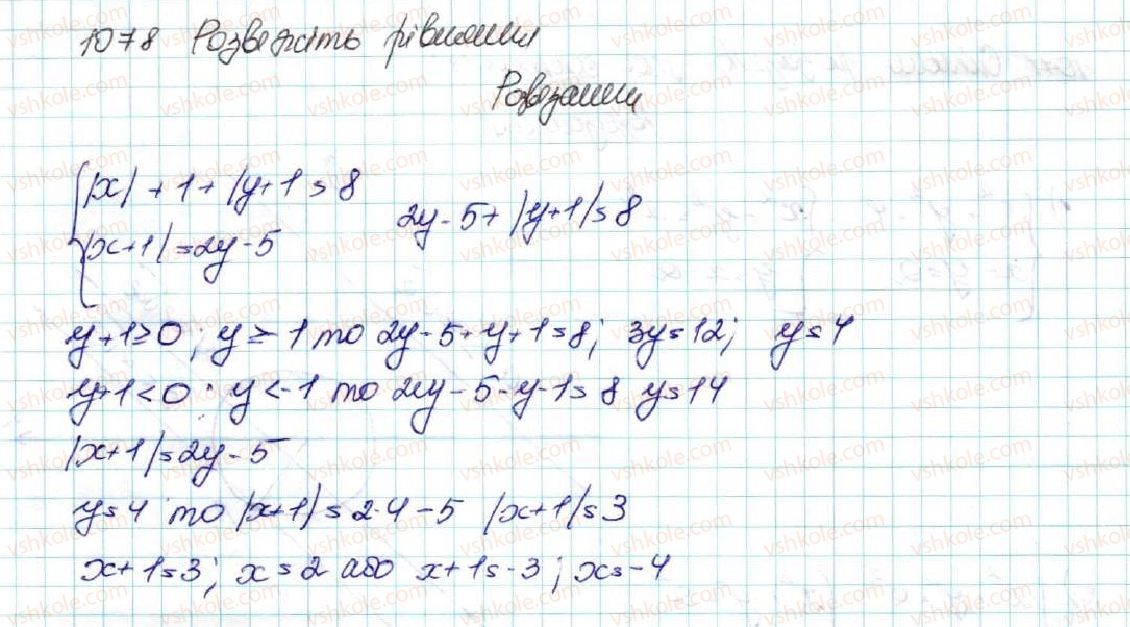 1078 Розвяжіть рівняння
Розвязання
|x| + 1 + |y+1 = 8
|x+1| = 2y-5
2y-5+|y+1|=8
y+1≥0; y≥-1 то 2y-5+y+1=8; 3y=12; y=4
y+1<0; y<-1 то 2y-5-y-1=8 y=14
|x+1|=2y-5
y=4 то |x+1|=2·4-5 |x+1|=3
x+1=3; x=2 або x+1=-3; x=-4